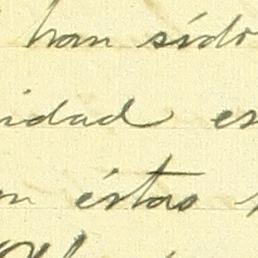 han sido
idad es
n éstas